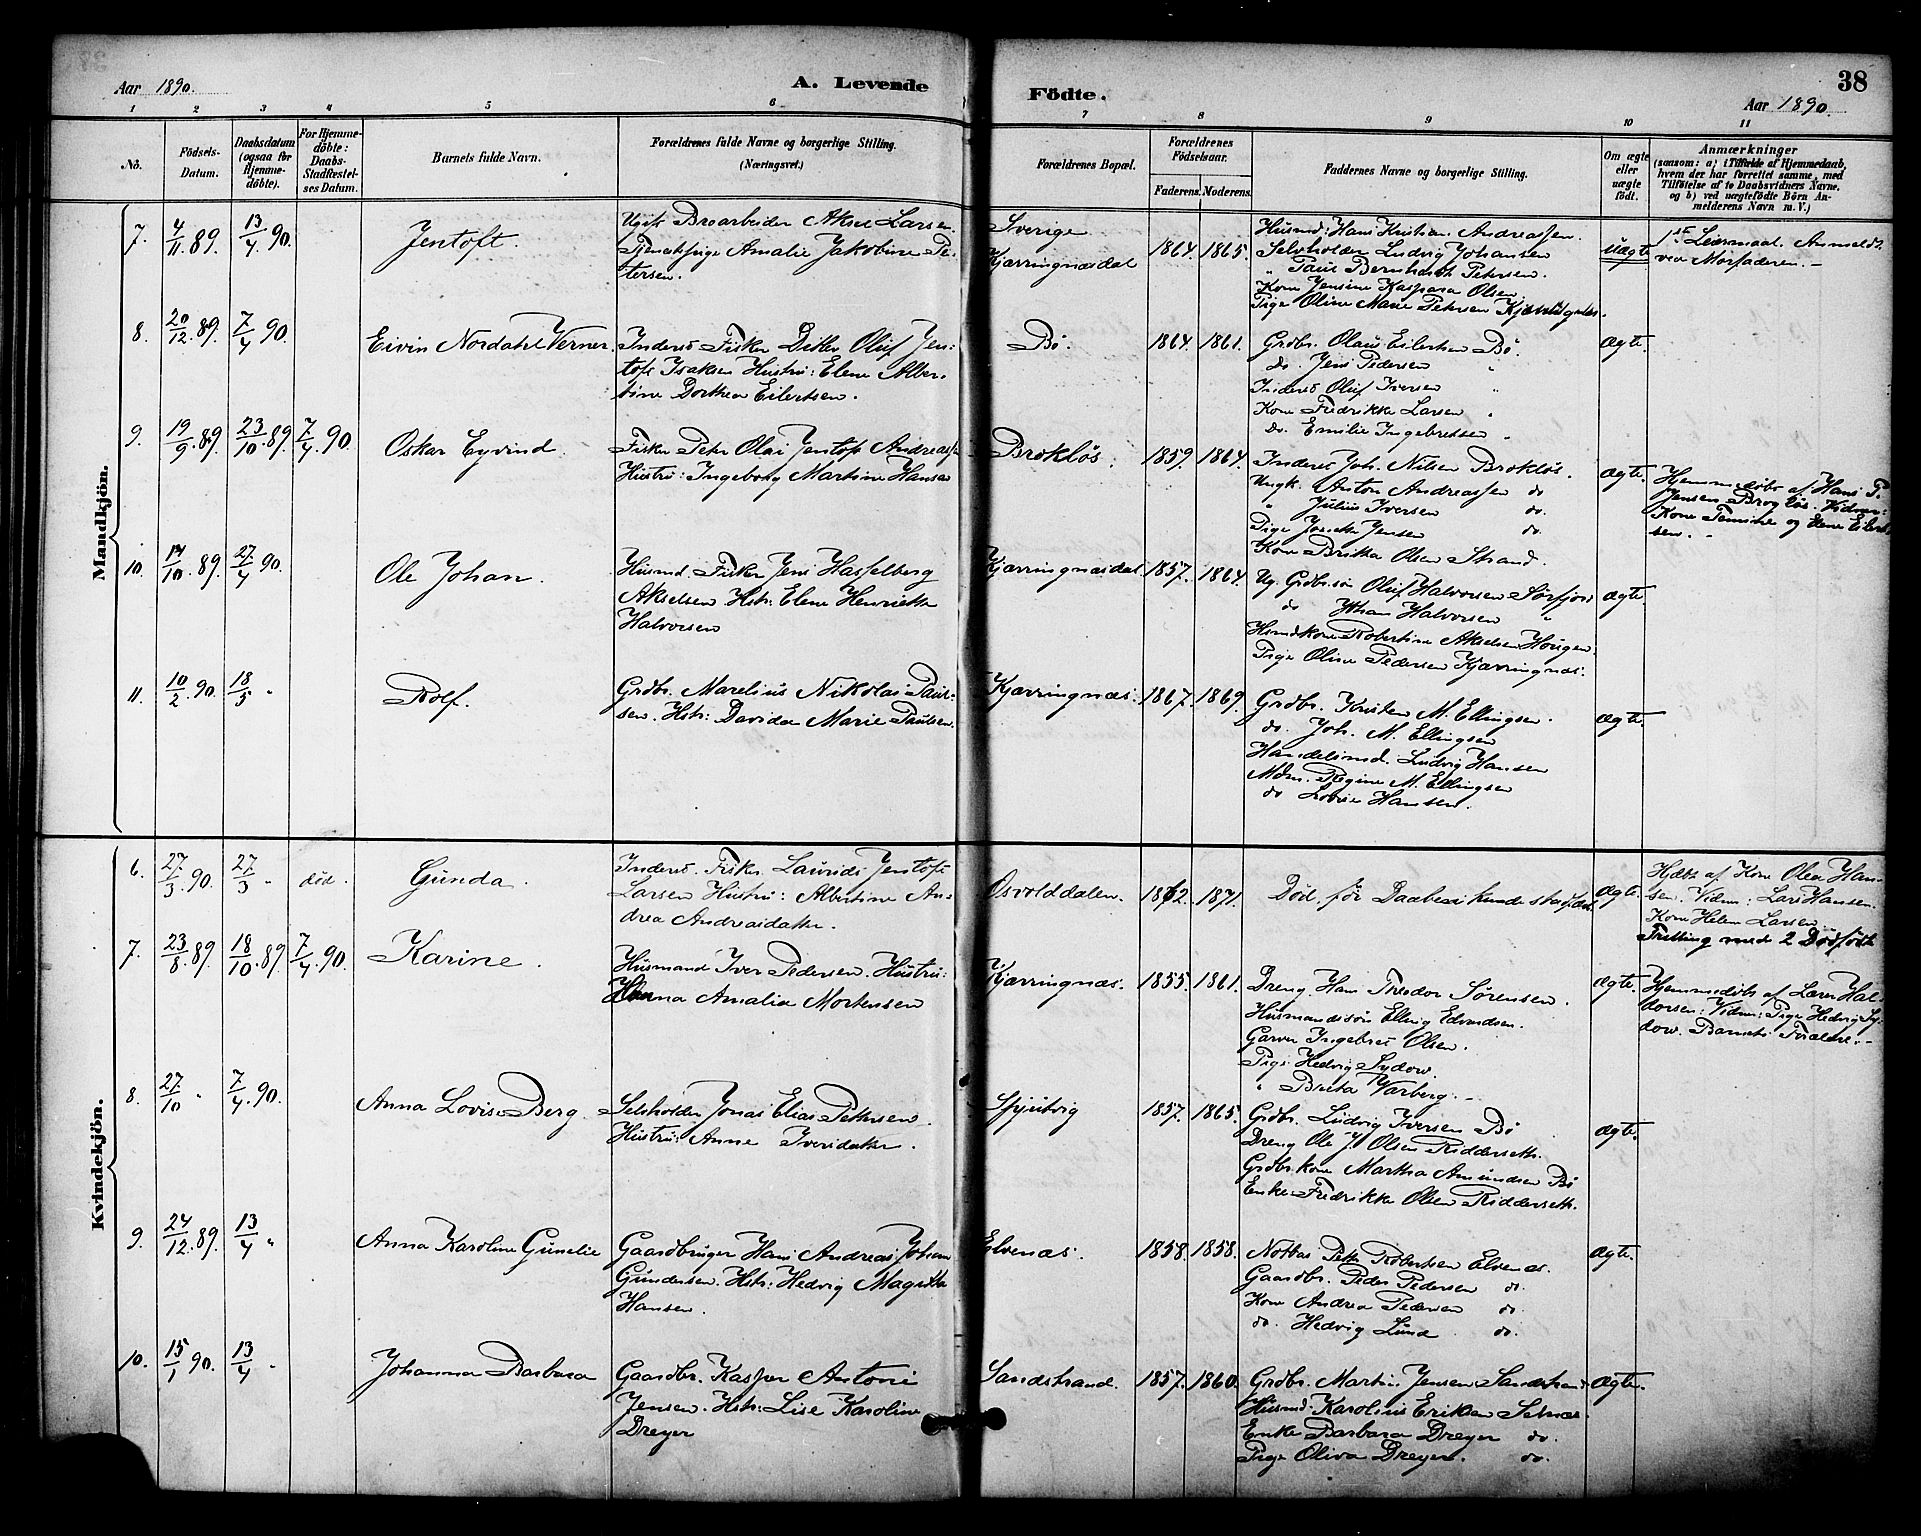 Aar 1890.
A. Levende
Födte.
38
Aar 1890.
1 2 3 4 5 6 7 8 9 10 11
No.
Födsels-Datum.
Daabsdatum (ogsaa for Hjemmedöbte).
For Hjemmedöbte: Daabs-Stadfæstelses Datum.
Barnets fulde Navn.
Forældrenes fulde Navne og borgerlige Stilling.
(Næringsvei.)
Forældrenes Bopæl.
Forældrenes Födselsaar.
Faderens. Moderens.
Faddernes Navne og borgerlige Stilling.
Om ægte eller uægte födt.
Anmærkninger
(saasom: a) i Tilfælde af Hjemmedaab,
hvem der har forrettet samme, med
Tilföielse af to Daabsvidners Navne.
og b) ved uægtefödte Börn An-
melderens Navn m. V.)
Mandkjön.
7. 4/11 89. 13/4 90.
Jentoft.
Ugift Broarbeider Aksel Larsen.
Tjenestpige Amalie Jakobine Pe-
tersen.
Sverige
Kjærringnæsdal
1864. 1865.
Husmd: Hans Kristian Andreassen.
Selvholder Ludvig Johansen
" Paul Bernhardt Petersen.
Kone Jensine Kaspara Olsen
Pige Oline Marie Petersen
uægte
1ste Leiermaal. Anmeldt
ved Morfaderen. –
8. 20/12 89. 7/4 90.
Eivin Nordahl Verner.
Inderst Fisker Ditlev Oluf Jen-
toft Isaksen Hustru: Elene Alber-
tine Dorthea Eilertsen.
Bö.
1864. 1861.
Grdbr. Olaus Eilertsen Bö.
do. Jens Pedersen "
Inderst Oluf Iversen "
Kone Fredrikke Larsen "
do. Emilie Ingebretsen "
Ægte.
9. 19/9 89. 23/10 89. 7/4 90.
Oskar Eyvind.
Fisker Peter Olai Jentoft Andreass.
Hustru: Ingeborg Martine Hansen
Brokløs.
1859. 1864.
Inderst Joh. Nilsen Brokløs.
Ungk. Anton Andreassen do
" Julius Iversen do.
Pige Jensen do.
Kone Britha Olsen Strand.
Ægte.
Hjemmedöbt af Hans P.
Jensen Brogløs. Vidner:
Kone og Elene Eilert-
sen. –
10. 14/10 89. 27/4 90.
Ole Johan.
Husmd. Fisker Jens Hasselberg
Akselsen Hstr: Elene Henriette
Halvorsen
Kjærringnæsdal
1857. 1864.
Ug. Grdbr.søn Oluf Halvorsen Sørfjord
do Halvorsen "
Hsmdkone Robertine Akselsen Haugen.
Pige Oline Pedersen Kjærringnæs.
Ægte.
11. 10/2 90. 18/5 "
Rolf.
Grdbr. Marelius Nikolai Paul-
sen. Hstr: Davida Marie Paulsen.
Kjærringnæs.
1867. 1869.
Grdbr. Kristen M. Ellingsen.
do. Joh. M. Ellingsen
Handelsmd. Ludvig Hansen
Mdm. Regine M. Ellingsen
do Lovise Hansen.
Ægte.
Kvindekjön.
6. 27/3 90. 27/3 " død.
Gunda.
Inderst. Fisker Laurids Jentoft
Larsen Hustru: Albertine An-
drea Andreasdatter.
Osvolddalen.
1862. 1871.
Död för Daaben kunde stadfæst.
Ægte.
Hjdbt af Kone Olea Han-
sen. Vidner: Lars Hansen.
Kone Helene Larsen
Trilling med 2 Dødfødte
7. 23/8 89. 18/10 89. 7/4 90.
Karine.
Husmand Iver Pedersen. Hustru:
Hanna Amalia Mortensen
Kjærringnæs.
1855. 1861.
Dreng. Hans Theodor Sørensen.
Husmandssøn Elling Edvardsen.
Garver Ingebret Olsen.
Pige Hedvig Sydow.
" Breta Varberg. –
Ægte.
Hjemmedöbt af Lars Hal-
dorsen: Vidner: Pige Hedvig Sy-
dow. Barnets Forældre. –
8. 27/10 " 7/4 90.
Anna Lovise Berg.
Selvholder Jonas Elias Pettersen.
Hustru: Anne Iversdatter.
Spjutvig
1857. 1865.
Grdbr. Ludvig Iversen Bö
Dreng Ole J. Olsen Ridderseth.
Grdbr.kone Martha Amundsen Bö
Enke Fredrikke Olsen Ridderseth.
Ægte.
9. 24/12 89. 13/4 "
Anna Karoline Gunelie
Gaardbruger Hans Andreas Johan
Gundersen. Hstr: Hedvig Magrethe
Hansen.
Elvenæs.
1858. 1858.
Notbas Peter Robertsen Elvenæs.
Gaardbr. Peder Pedersen do.
Kone Andrea Pedersen do.
do. Hedvig Lund do.
Ægte.
10. 15/1 90. 13/4 "
Johanna Barbara
Gaardbr. Kasper Antoni
Jensen. Hstr: Lise Karoline
Dreyer
Sandstrand.
1857. 1860.
Grdbr. Martin Jensen Sandstrand
Husmd: Karolius Eriksen Selnæs.
Enke Barbara Dreyer do.
Pige Oliva Dreyer. do.
Ægte.